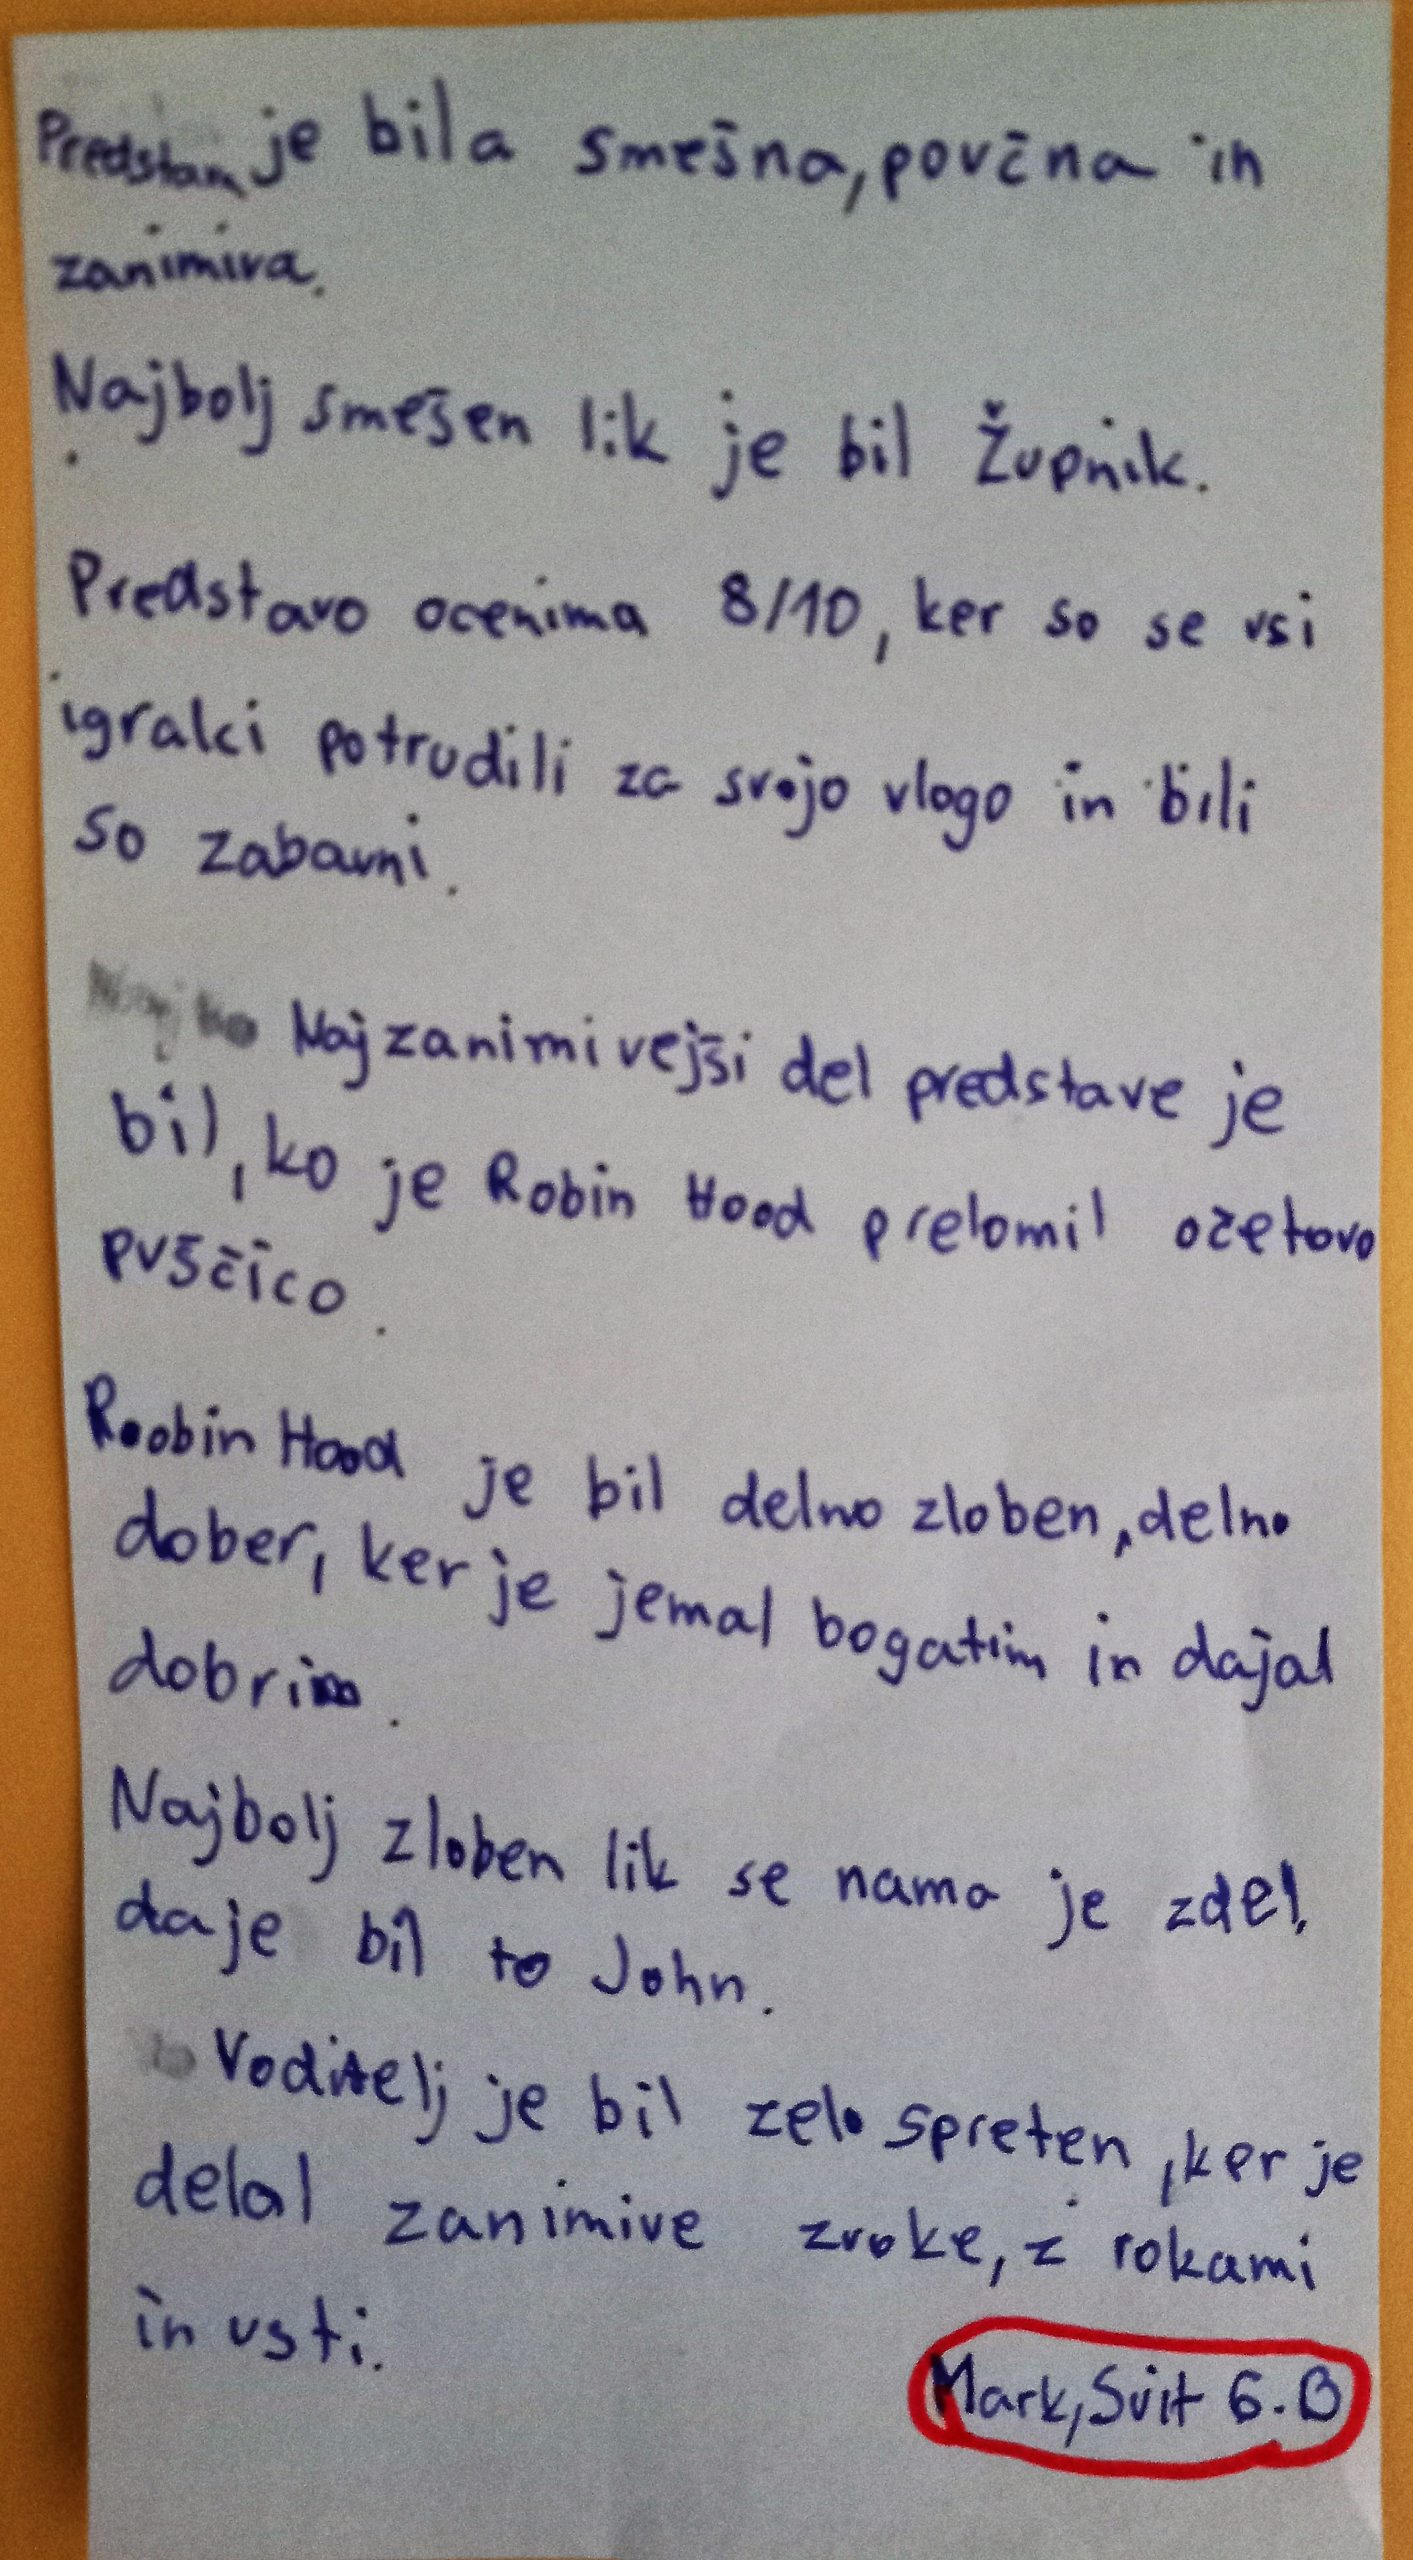 Predstava je bila smešna, povčna in
zanimiva.
Najbolj smešen lik je bil Župnik.
Predstavo ocenima 8/10, ker so se vsi
igralci potrudili za svojo vlogo in bili
so zabavni.
Najzanimivejši del predstave je
bil, ko je Robin Hood prelomil očetovo
puščico.
Roobin Hood je bil delno zloben, delno
dober, ker je jemal bogatim in dajal
dobrim.
Najbolj zloben lik se nama je zdel,
da je bil to John.
Voditelj je bil zelo spreten, ker je
delal zanimive zvoke, z rokami
in usti.
Mark, Svit 6. B